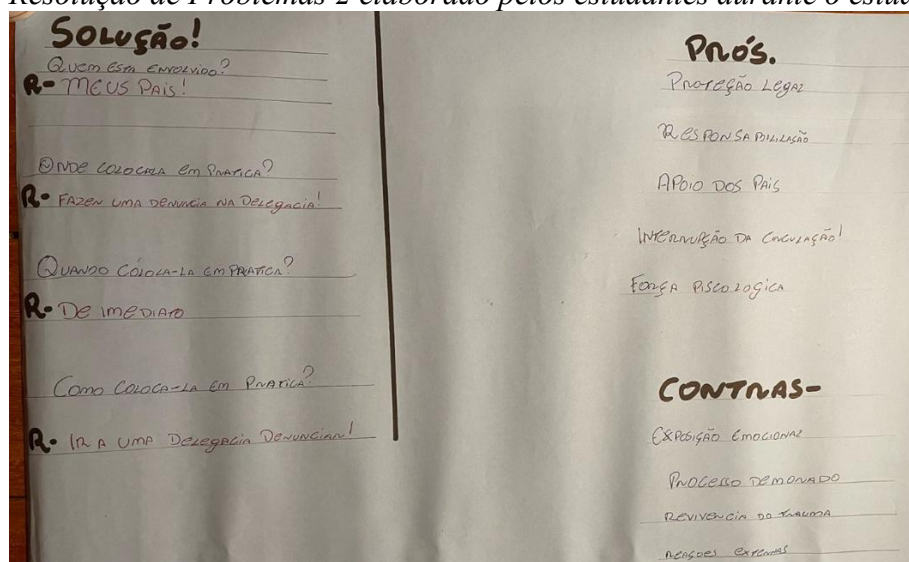 Resolução de Problemas 2 elaborado pelos estudantes durante o
SOLUÇÃO!
QUEM ESTA ENVOLVIDO?
R- MEUS PAIS!
ONDE COLOCALA EM PRATICA?
R- FAZER UMA DENUNCIA NA DELEGACIA!
QUANDO COLOCA-LA EM PRATICA?
R- DE IMEDIATO
COMO COLOCA-LA EM PRATICA?
R- IR A UMA DELEGACIA DENUNCIAR!
PRÓS.
PROTEÇÃO LEGAL
RESPONSABILILAÇÃO
APOIO DOS PAIS
INTERRUPÇÃO DA CIRCULAÇÃO!
FORÇA PISCOLOGICA
CONTRAS-
EXPOSIÇÃO EMOCIONAL
PROCESSO DEMORADO
REVIVENCIA DO TRAUMA
REAÇOES EXTERNAS